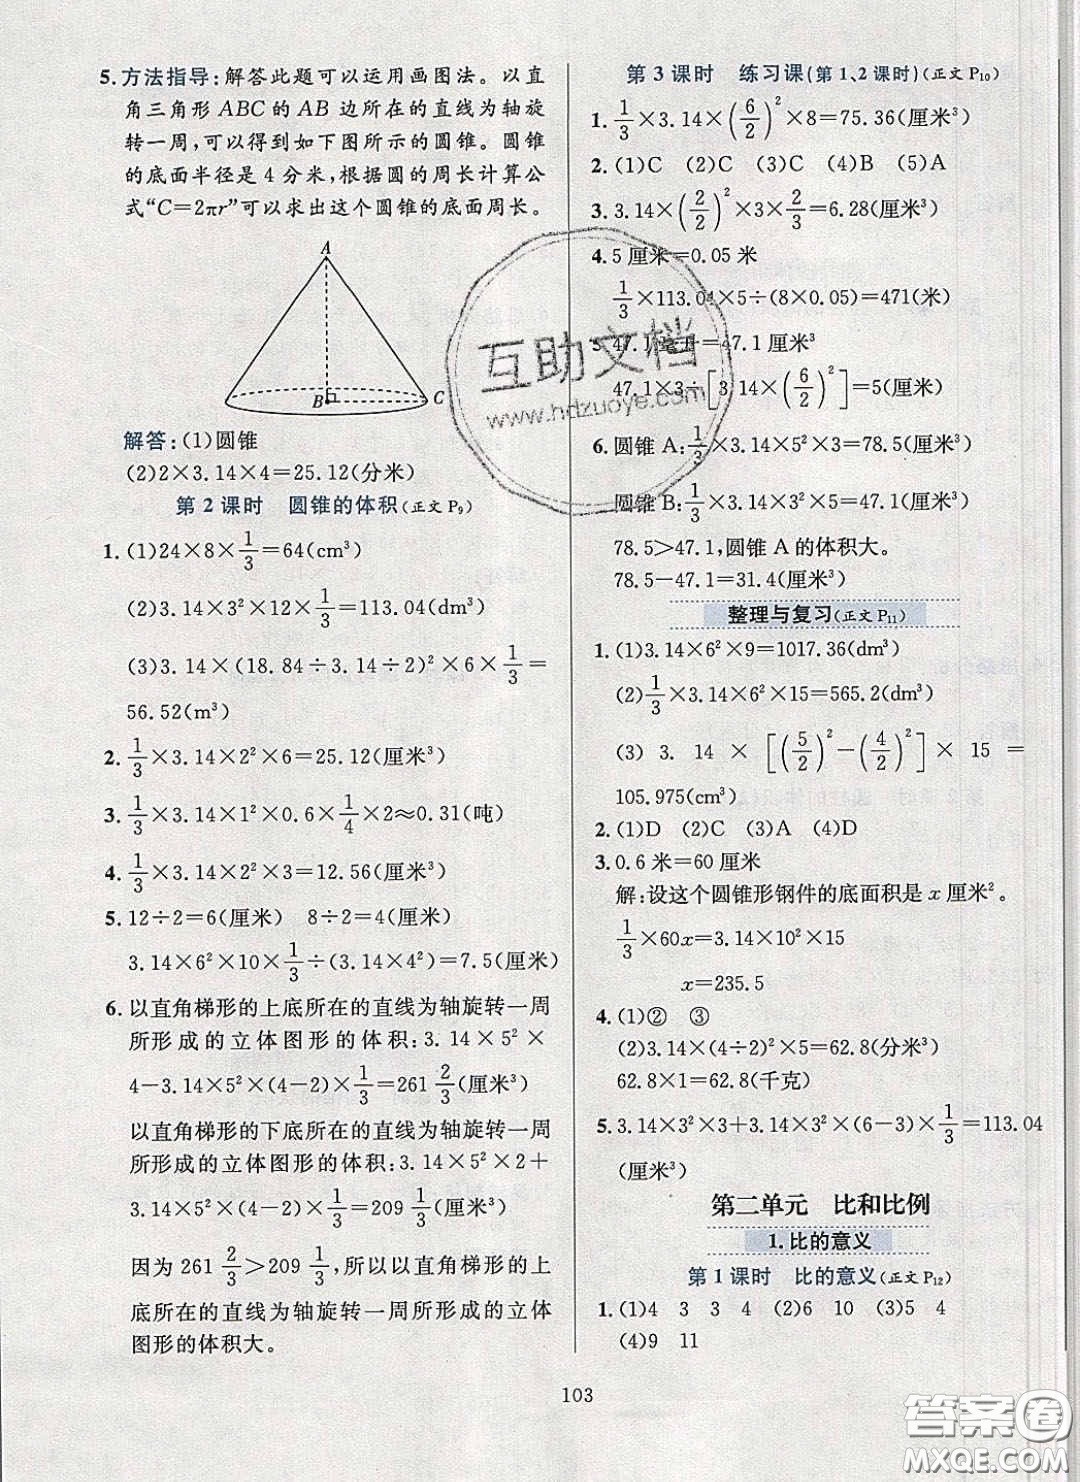 5. 方法指导:解答此题可以运用画图法。以直
角三角形 ABC 的 AB 边所在的直线为轴旋
转一周,可以得到如下图所示的圆锥。圆锥
的底面半径是 4 分米,根据圆的周长计算公
式“C=2πr”可以求出这个圆锥的底面周长。
A
B
C
解答:(1)圆锥
(2)2×3.14×4=25.12(分米)
第 2 课时 圆锥的体积(正文 P9)
1. (1)24×8×1/3=64(cm³)
(2)3.14×3²×12×1/3=113.04(dm³)
(3)3.14×(18.84÷3.14÷2)²×6×1/3=
56.52(m³)
2. 1/3×3.14×2²×6=25.12(厘米³)
3. 1/3×3.14×1²×0.6×1/4×2≈0.31(吨)
4. 1/3×3.14×2²×3=12.56(厘米³)
5. 12÷2=6(厘米) 8÷2=4(厘米)
3.14×6²×10×1/3÷(3.14×4²)=7.5(厘米)
6. 以直角梯形的上底所在的直线为轴旋转一周
所形成的立体图形的体积:3.14×5²×
4-3.14×5²×(4-2)×1/3=261 2/3(厘米³)
以直角梯形的下底所在的直线为轴旋转一周
所形成的立体图形的体积:3.14×5²×2+
3.14×5²×(4-2)×1/3=209 1/3(厘米³)
因为 261 2/3>209 1/3,所以以直角梯形的上
底所在的直线为轴旋转一周所形成的立体
图形的体积大。
第 3 课时 练习课(第 1、2 课时)(正文 P10)
1. 1/3×3.14×(6/2)²×8=75.36(厘米³)
2. (1)C (2)C (3)C (4)B (5)A
3. 3.14×(2/2)²×3×2/3=6.28(厘米³)
4. 5 厘米=0.05 米
1/3×113.04×5÷(8×0.05)=471(米)
5. 47.1 毫升=47.1 厘米³
47.1×3÷[3.14×(6/2)²]=5(厘米)
6. 圆锥 A:1/3×3.14×5²×3=78.5(厘米³)
圆锥 B:1/3×3.14×3²×5=47.1(厘米³)
78.5>47.1,圆锥 A 的体积大。
78.5-47.1=31.4(厘米³)
整理与复习(正文 P11)
1. (1)3.14×6²×9=1017.36(dm³)
(2)1/3×3.14×6²×15=565.2(dm³)
(3) 3.14×[(5/2)²-(4/2)²]×15=
105.975(cm³)
2. (1)D (2)C (3)A (4)D
3. 0.6 米=60 厘米
解:设这个圆锥形钢件的底面积是 x 厘米²。
1/3×60x=3.14×10²×15
x=235.5
4. (1)② ③
(2)3.14×(4÷2)²×5=62.8(分米³)
62.8×1=62.8(千克)
5. 3.14×3²×3+3.14×3²×(6-3)×1/3=113.04
(厘米³)
第二单元 比和比例
1.比的意义
第 1 课时 比的意义(正文 P12)
1. (1)4 3 3 4 (2)6 10 (3)5 4
(4)9 11
103
互助文档
www.hdzuoye.com
答案圈
MXQE.COM